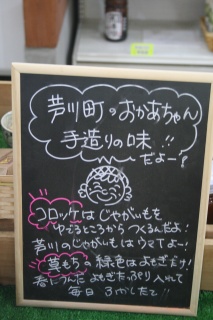 芦川町のおかあちゃん
手造りの味!!
だよー!
コロッケはじゃがいもを
ゆでるところからつくるんだよ!
芦川のじゃがいもはウマイよー!
草もちの緑色はよもぎだけ!
春につんだよもぎたっぷり入れて
毎日